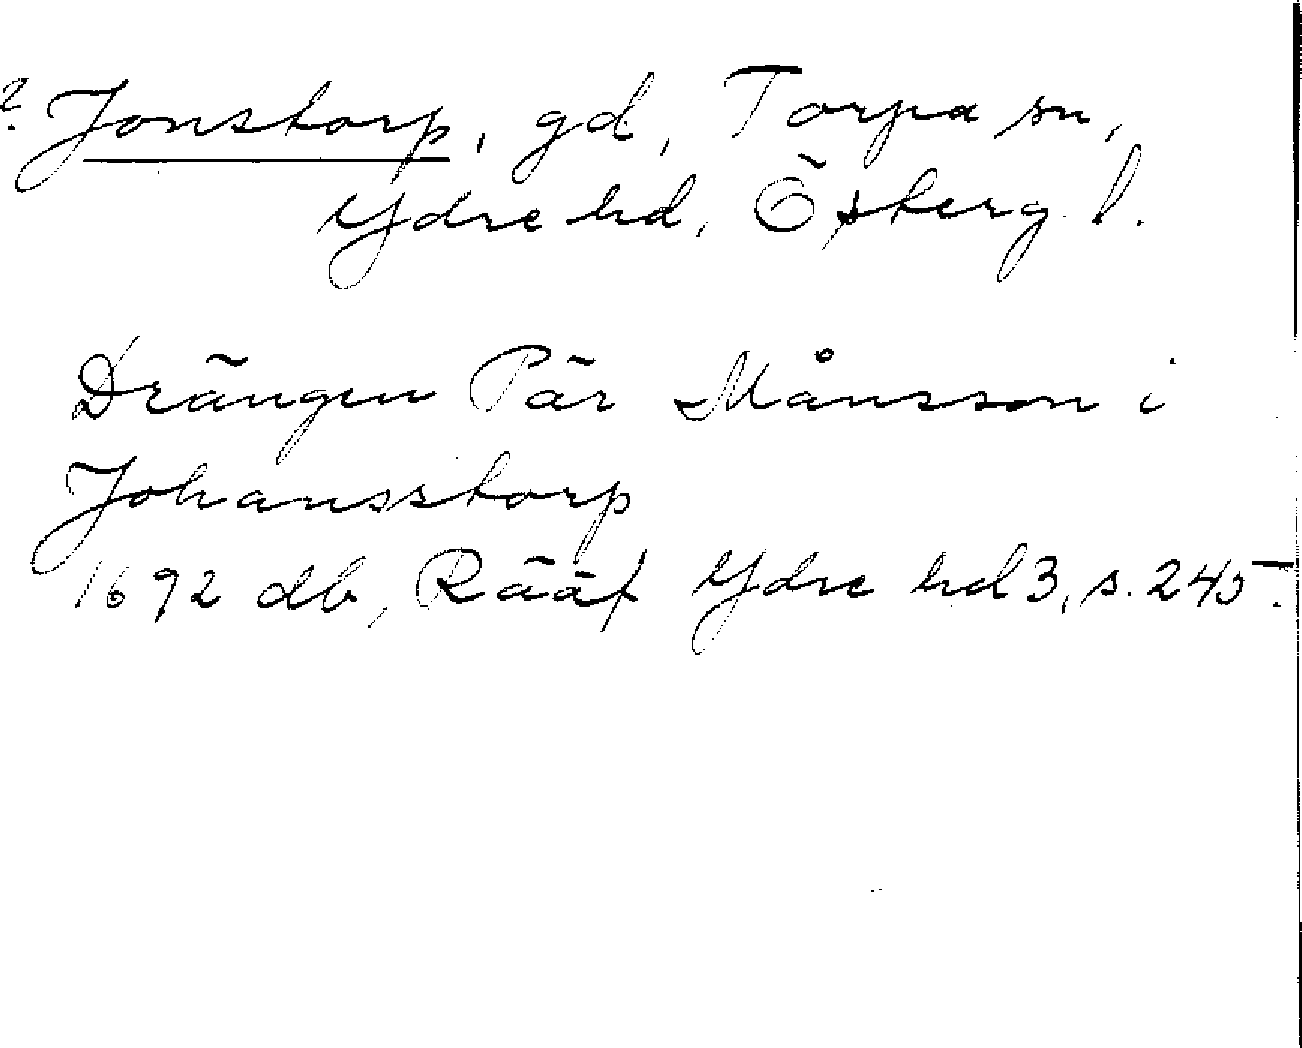 ? Jonstorp, gd, Torpa sn,
Ydre hd, Östergl.
Drängen Pär Månsson i
Johansstorp
1692 db, Rääf Ydre hd 3, s. 245.